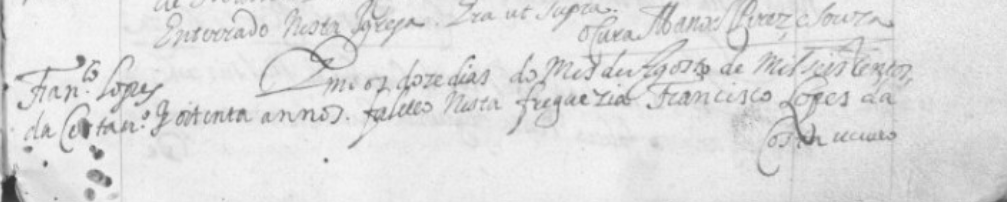 Enterrado Nesta Igreja. Era ut Supra.
o Cura Manoel Perez e Souza
Fran.co Lopes
da Costa
Em os doze dias do Mes de Agosto de Mil seis centos,
E oitenta annos. faleceo Nesta freguezia Francisco Lopes da
Costa